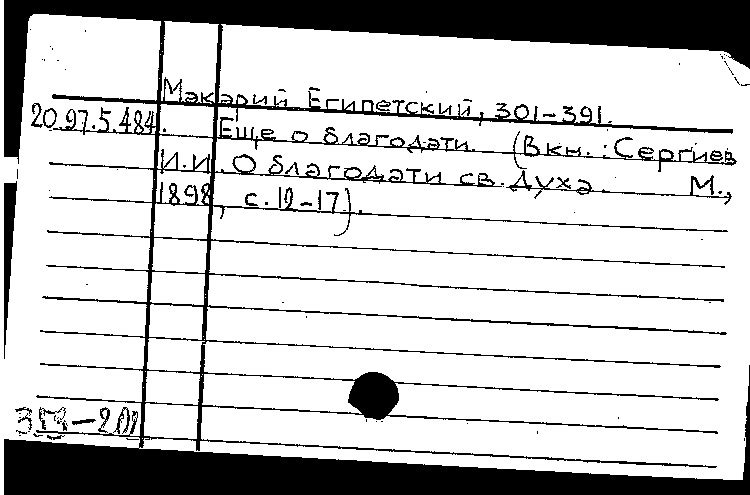 Макарий Египетский, 301-391.
20.97.5.484. Еще о благодати. (В кн.: Сергиев
И.И. О благодати св. Духа. М.,
1898, с. 12-17).